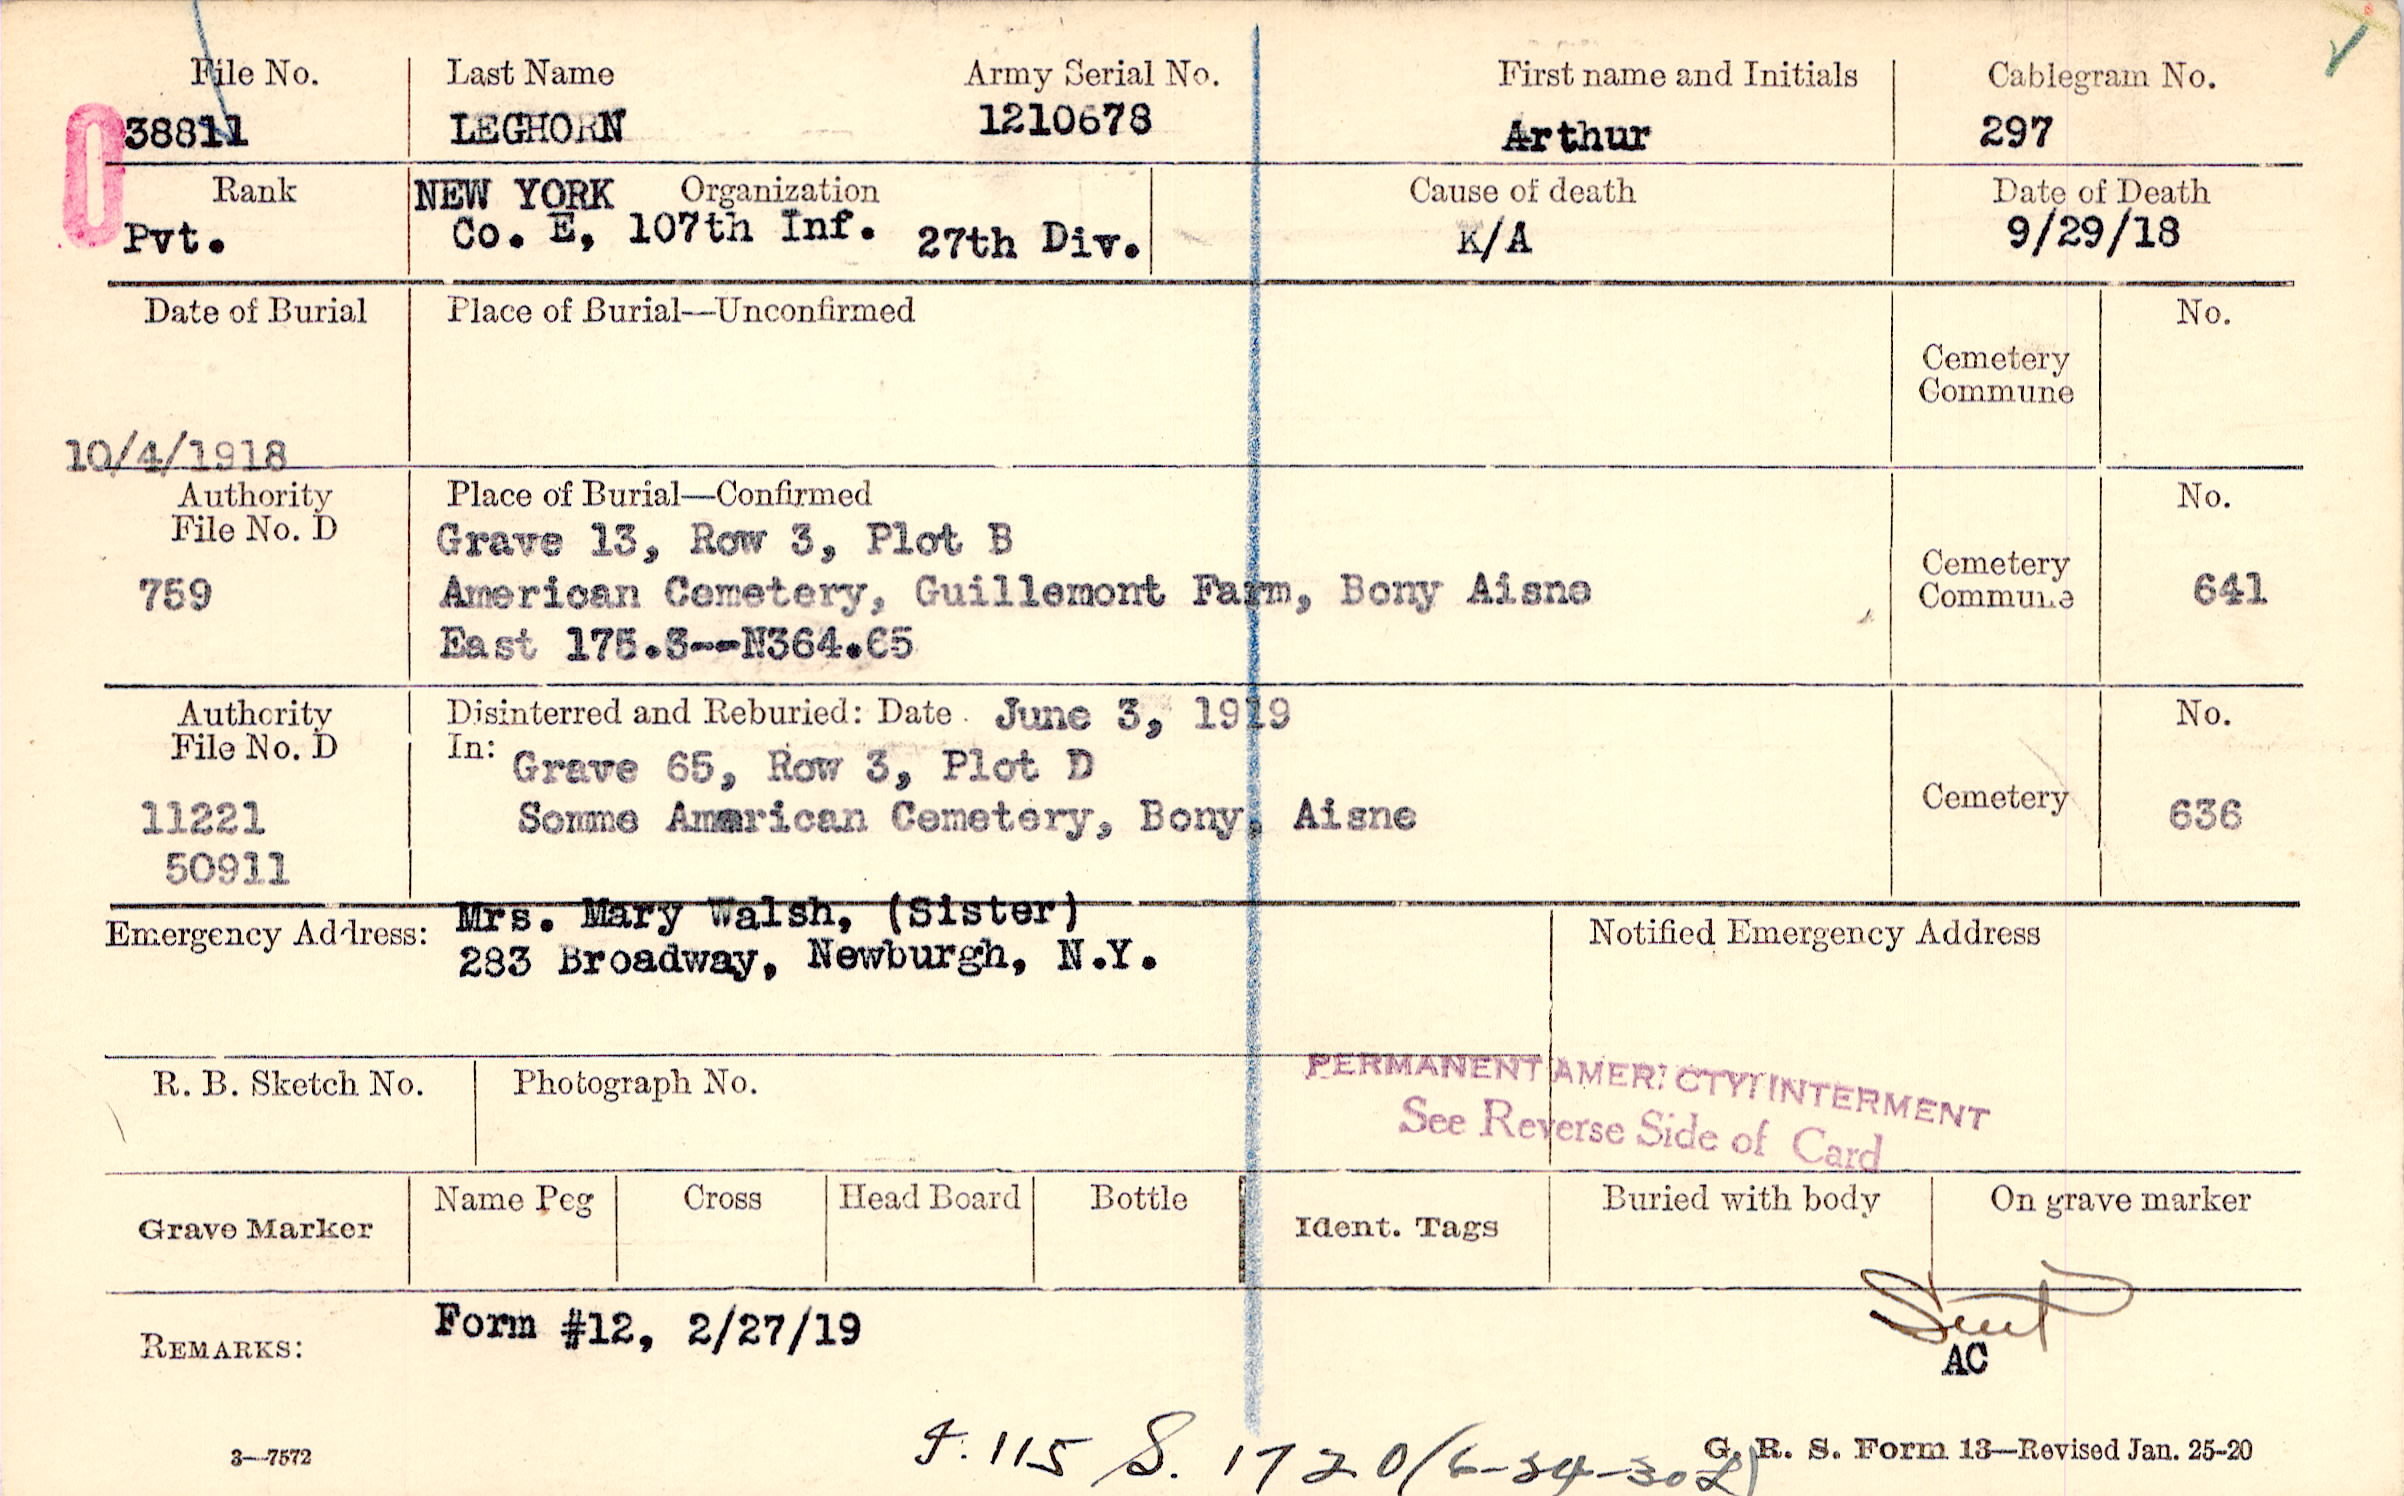 File No. Last Name Army Serial No. First name and Initials Cablegram No.
38811 LEGHORN 1210678 Arthur 297
Rank NEW YORK Organization Cause of death Date of Death
Pvt. Co. E, 107th Inf. 27th Div. K/A 9/29/18
Date of Burial Place of Burial—Unconfirmed No.
Cemetery
Commune
10/4/1918
Authority Place of Burial—Confirmed No.
File No. D Grave 13, Row 3, Plot B
Cemetery
759 American Cemetery, Guillemont Farm, Bony Aisne Commune 641
East 175.3--N364.65
Authority Disinterred and Reburied: Date June 3, 1919 No.
File No. D In: Grave 65, Row 3, Plot D
11221 Somme American Cemetery, Bony, Aisne Cemetery 636
50911
Emergency Address: Mrs. Mary Walsh, (Sister) Notified Emergency Address
283 Broadway, Newburgh, N.Y.
R. B. Sketch No. Photograph No.
PERMANENT AMER. CTY. INTERMENT
See Reverse Side of Card
Grave Marker Name Peg Cross Head Board Bottle Ident. Tags Buried with body On grave marker
REMARKS: Form #12, 2/27/19
Sent
AC
3—7572
F. 115 S. 1720 (6-34-30L)
G. R. S. Form 13—Revised Jan. 25-20